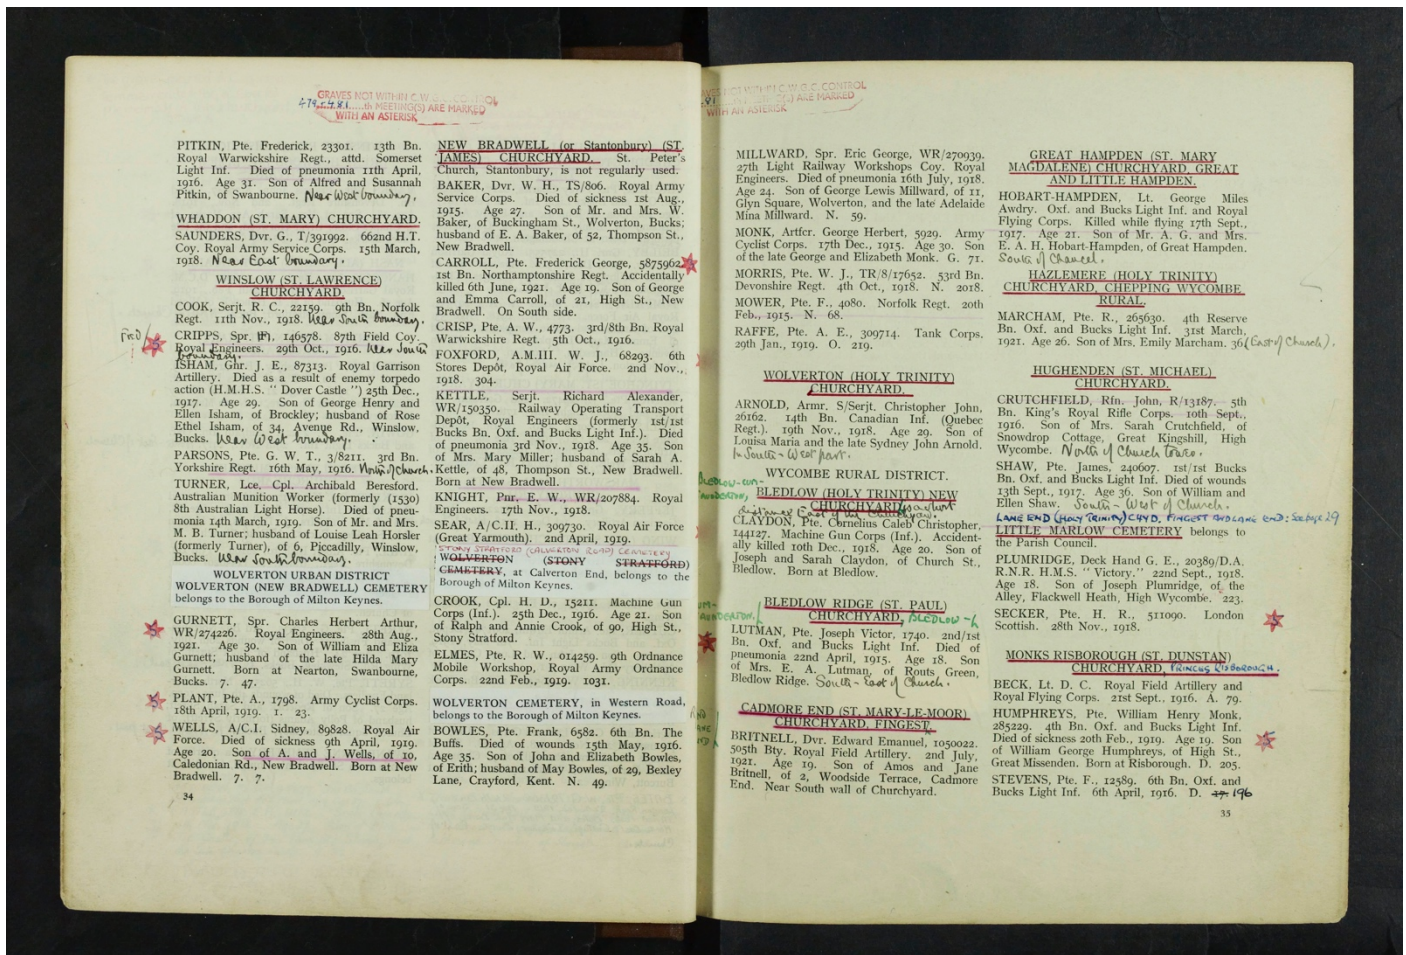 GRAVES NOT WITHIN C.W.G.C. CONTROL
479-481......th MEETING(S) ARE MARKED
WITH AN ASTERISK
PITKIN, Pte. Frederick, 23301. 13th Bn.
Royal Warwickshire Regt., attd. Somerset
Light Inf. Died of pneumonia 11th April,
1916. Age 31. Son of Alfred and Susannah
Pitkin, of Swanbourne. Near West boundary.
WHADDON (ST. MARY) CHURCHYARD.
SAUNDERS, Dvr. G., T/391992. 662nd H.T.
Coy. Royal Army Service Corps. 15th March,
1918. Near East boundary.
WINSLOW (ST. LAWRENCE)
CHURCHYARD.
COOK, Serjt. R. C., 22159. 9th Bn. Norfolk
Regt. 11th Nov., 1918. Near South boundary.
CRIPPS, Spr. 146578. 87th Field Coy.
Royal Engineers. 29th Oct., 1916. Near South
boundary.
ISHAM, Gnr. J. E., 87313. Royal Garrison
Artillery. Died as a result of enemy torpedo
action (H.M.H.S. " Dover Castle ") 25th Dec.,
1917. Age 29. Son of George Henry and
Ellen Isham, of Brockley; husband of Rose
Ethel Isham, of 34, Avenue Rd., Winslow,
Bucks. Near West boundary.
PARSONS, Pte. G. W. T., 3/8211. 3rd Bn.
Yorkshire Regt. 16th May, 1916. North of Church.
TURNER, Lce. Cpl. Archibald Beresford.
Australian Munition Worker (formerly (1530)
8th Australian Light Horse). Died of pneu-
monia 14th March, 1919. Son of Mr. and Mrs.
M. B. Turner; husband of Louise Leah Horsler
(formerly Turner), of 6, Piccadilly, Winslow,
Bucks. Near South boundary.
WOLVERTON URBAN DISTRICT
WOLVERTON (NEW BRADWELL) CEMETERY
belongs to the Borough of Milton Keynes.
GURNETT, Spr. Charles Herbert Arthur,
WR/274226. Royal Engineers. 28th Aug.,
1921. Age 30. Son of William and Eliza
Gurnett; husband of the late Hilda Mary
Gurnett. Born at Nearton, Swanbourne,
Bucks. 7. 47.
PLANT, Pte. A., 1798. Army Cyclist Corps.
18th April, 1919. 1. 23.
WELLS, A/C.I. Sidney, 89828. Royal Air
Force. Died of sickness 9th April, 1919.
Age 20. Son of A. and J. Wells, of 10,
Caledonian Rd., New Bradwell. Born at New
Bradwell. 7. 7.
34
NEW BRADWELL (or Stantonbury) (ST.
JAMES) CHURCHYARD. St. Peter's
Church, Stantonbury, is not regularly used.
BAKER, Dvr. W. H., TS/806. Royal Army
Service Corps. Died of sickness 1st Aug.,
1915. Age 27. Son of Mr. and Mrs. W.
Baker, of Buckingham St., Wolverton, Bucks;
husband of E. A. Baker, of 52, Thompson St.,
New Bradwell.
CARROLL, Pte. Frederick George, 5875962.
1st Bn. Northamptonshire Regt. Accidentally
killed 6th June, 1921. Age 19. Son of George
and Emma Carroll, of 21, High St., New
Bradwell. On South side.
CRISP, Pte. A. W., 4773. 3rd/8th Bn. Royal
Warwickshire Regt. 5th Oct., 1916.
FOXFORD, A.M.III. W. J., 68293. 6th
Stores Depôt, Royal Air Force. 2nd Nov.,
1918. 304.
KETTLE, Serjt. Richard Alexander,
WR/150350. Railway Operating Transport
Depôt, Royal Engineers (formerly 1st/1st
Bucks Bn. Oxf. and Bucks Light Inf.). Died
of pneumonia 3rd Nov., 1918. Age 35. Son
of Mrs. Mary Miller; husband of Sarah A.
Kettle, of 48, Thompson St., New Bradwell.
Born at New Bradwell.
KNIGHT, Pnr. E. W., WR/207884. Royal
Engineers. 17th Nov., 1918.
SEAR, A/C.II. H., 309730. Royal Air Force
(Great Yarmouth). 2nd April, 1919.
STONY STRATFORD (CALVERTON ROAD) CEMETERY
WOLVERTON (STONY STRATFORD)
CEMETERY, at Calverton End, belongs to the
Borough of Milton Keynes.
CROOK, Cpl. H. D., 15211. Machine Gun
Corps (Inf.). 25th Dec., 1916. Age 21. Son
of Ralph and Annie Crook, of 90, High St.,
Stony Stratford.
ELMES, Pte. R. W., 014259. 9th Ordnance
Mobile Workshop, Royal Army Ordnance
Corps. 22nd Feb., 1919. 1031.
WOLVERTON CEMETERY, in Western Road,
belongs to the Borough of Milton Keynes.
BOWLES, Pte. Frank, 6582. 6th Bn. The
Buffs. Died of wounds 15th May, 1916.
Age 35. Son of John and Elizabeth Bowles,
of Erith; husband of May Bowles, of 29, Bexley
Lane, Crayford, Kent. N. 49.
NOT WITHIN C.W.G.C. CONTROL
MEETING(S) ARE MARKED
WITH AN ASTERISK
MILLWARD, Spr. Eric George, WR/270939.
27th Light Railway Workshops Coy. Royal
Engineers. Died of pneumonia 16th July, 1918.
Age 24. Son of George Lewis Millward, of 11,
Glyn Square, Wolverton, and the late Adelaide
Mina Millward. N. 59.
MONK, Artfcr. George Herbert, 5929. Army
Cyclist Corps. 17th Dec., 1915. Age 30. Son
of the late George and Elizabeth Monk. G. 71.
MORRIS, Pte. W. J., TR/8/17652. 53rd Bn.
Devonshire Regt. 4th Oct., 1918. N. 2018.
MOWER, Pte. F., 4080. Norfolk Regt. 20th
Feb., 1915. N. 68.
RAFFE, Pte. A. E., 309714. Tank Corps.
29th Jan., 1919. O. 219.
WOLVERTON (HOLY TRINITY)
CHURCHYARD.
ARNOLD, Armr. S/Serjt. Christopher John,
26162. 14th Bn. Canadian Inf. (Quebec
Regt.). 19th Nov., 1918. Age 29. Son of
Louisa Maria and the late Sydney John Arnold.
In South-West part.
WYCOMBE RURAL DISTRICT.
BLEDLOW-CUM-
BLEDLOW (HOLY TRINITY) NEW
CHURCHYARD, is a short
distance East of the Churchyard.
CLAYDON, Pte. Cornelius Caleb Christopher,
144127. Machine Gun Corps (Inf.). Accident-
ally killed 10th Dec., 1918. Age 20. Son of
Joseph and Sarah Claydon, of Church St.,
Bledlow. Born at Bledlow.
BLEDLOW RIDGE (ST. PAUL)
CHURCHYARD, BLEDLOW-
LUTMAN, Pte. Joseph Victor, 1740. 2nd/1st
Bn. Oxf. and Bucks Light Inf. Died of
pneumonia 22nd April, 1915. Age 18. Son
of Mrs. E. A. Lutman, of Routs Green,
Bledlow Ridge. South-East of Church.
CADMORE END (ST. MARY-LE-MOOR)
CHURCHYARD, FINGEST
BRITNELL, Dvr. Edward Emanuel, 1050022.
505th Bty. Royal Field Artillery. 2nd July,
1921. Age 19. Son of Amos and Jane
Britnell, of 2, Woodside Terrace, Cadmore
End. Near South wall of Churchyard.
GREAT HAMPDEN (ST. MARY
MAGDALENE) CHURCHYARD, GREAT
AND LITTLE HAMPDEN.
HOBART-HAMPDEN, Lt. George Miles
Awdry. Oxf. and Bucks Light Inf. and Royal
Flying Corps. Killed while flying 17th Sept.,
1917. Age 21. Son of Mr. A. G. and Mrs.
E. A. H. Hobart-Hampden, of Great Hampden.
South of Chancel.
HAZLEMERE (HOLY TRINITY)
CHURCHYARD, CHEPPING WYCOMBE
RURAL.
MARCHAM, Pte. R., 265630. 4th Reserve
Bn. Oxf. and Bucks Light Inf. 31st March,
1921. Age 26. Son of Mrs. Emily Marcham. 36 (East of Church).
HUGHENDEN (ST. MICHAEL)
CHURCHYARD.
CRUTCHFIELD, Rfn. John, R/13187. 5th
Bn. King's Royal Rifle Corps. 10th Sept.,
1916. Son of Mrs. Sarah Crutchfield, of
Snowdrop Cottage, Great Kingshill, High
Wycombe. North of Church tower.
SHAW, Pte. James, 240607. 1st/1st Bucks
Bn. Oxf. and Bucks Light Inf. Died of wounds
13th Sept., 1917. Age 36. Son of William and
Ellen Shaw. South-West of Church.
LANE END (HOLY TRINITY) CHYD. FINGEST AND LANE END: See page 29
LITTLE MARLOW CEMETERY belongs to
the Parish Council.
PLUMRIDGE, Deck Hand G. E., 20389/D.A.
R.N.R. H.M.S. " Victory." 22nd Sept., 1918.
Age 18. Son of Joseph Plumridge, of the
Alley, Flackwell Heath, High Wycombe. 223.
SECKER, Pte. H. R., 511090. London
Scottish. 28th Nov., 1918.
MONKS RISBOROUGH (ST. DUNSTAN)
CHURCHYARD, PRINCES RISBOROUGH.
BECK, Lt. D. C. Royal Field Artillery and
Royal Flying Corps. 21st Sept., 1916. A. 79.
HUMPHREYS, Pte. William Henry Monk,
285229. 4th Bn. Oxf. and Bucks Light Inf.
Died of sickness 20th Feb., 1919. Age 19. Son
of William George Humphreys, of High St.,
Great Missenden. Born at Risborough. D. 205.
STEVENS, Pte. F., 12589. 6th Bn. Oxf. and
Bucks Light Inf. 6th April, 1916. D. 196
35